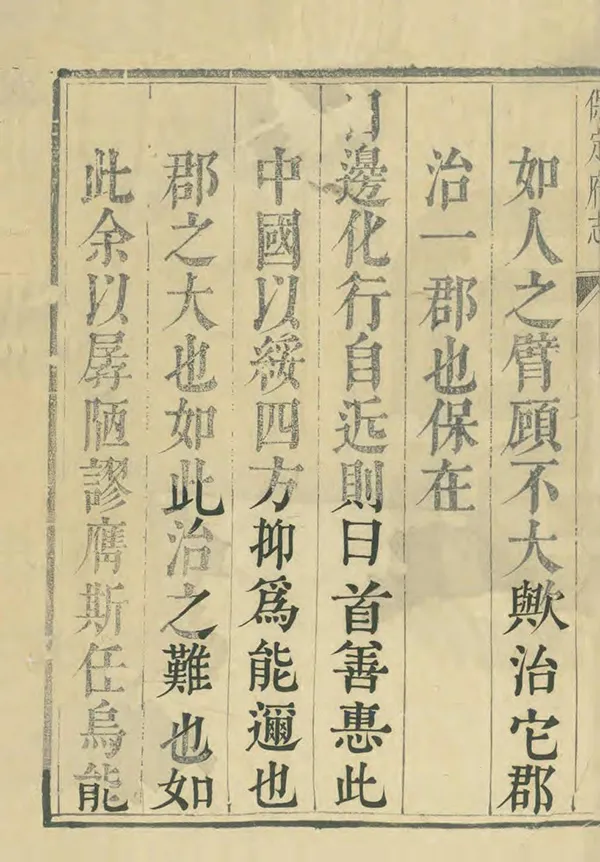 保定府志
如人之臂顧不大歟治它郡
治一郡也保在
日邊化行自近則曰首善惠此
中國以綏四方抑爲能邇也
郡之大也如此治之難也如
此余以孱陋謬膺斯任烏能